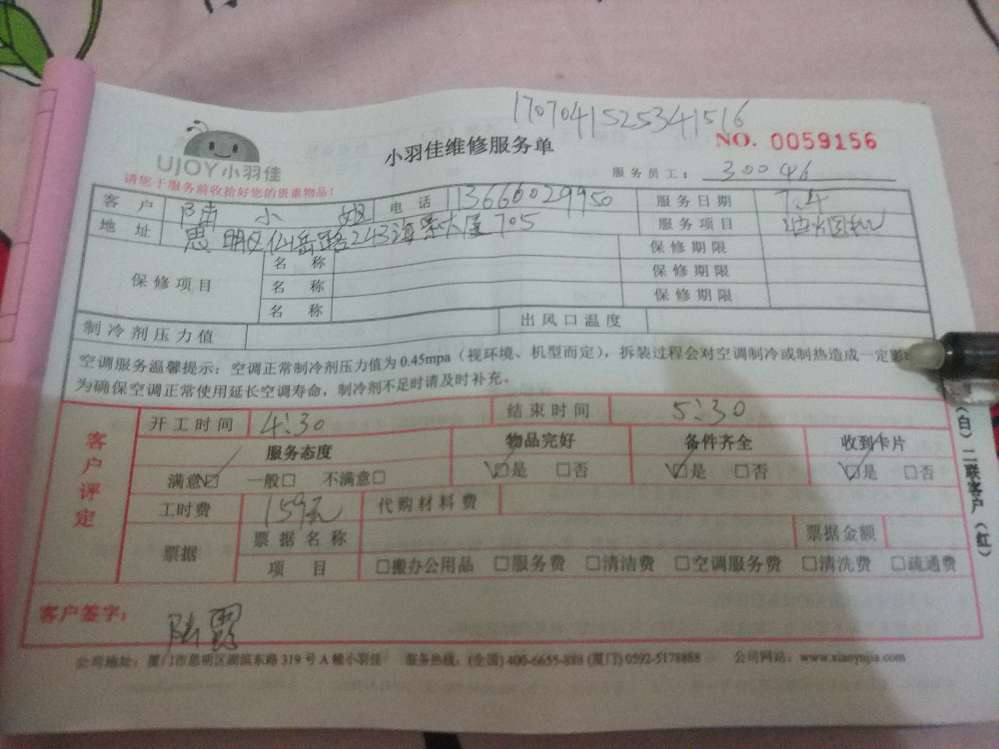 1707041525341516
UJOY小羽佳
小羽佳维修服务单
NO. 0059156
请您于服务前收拾好您的贵重物品!
服务员工: 30046
客户 陆小姐 电话 13666029950 服务日期 7.4
地址 思明区仙岳路243海景大厦705 服务项目 油烟机
保修项目 名称 保修期限
名称 保修期限
名称 保修期限
制冷剂压力值 出风口温度
空调服务温馨提示:空调正常制冷剂压力值为0.45mpa(视环境、机型而定),拆装过程会对空调制冷或制热造成一定影
为确保空调正常使用延长空调寿命,制冷剂不足时请及时补充。
客户评定
开工时间 4:30 结束时间 5:30
服务态度 物品完好 备件齐全 收到卡片
满意☑ 一般□ 不满意□ ☑是 □否 ☑是 □否 ☑是 □否
工时费 159元 代购材料费
票据 票据名称 票据金额
项目 □搬办公用品 □服务费 □清洁费 □空调服务费 □清洗费 □疏通费
客户签字:
公司地址:厦门市思明区湖滨东路319号A幢小羽佳 服务热线:(全国)400-6655-888 (厦门)0592-5178888 公司网站:www.xiaoyujia.com
(白)二联客户(红)